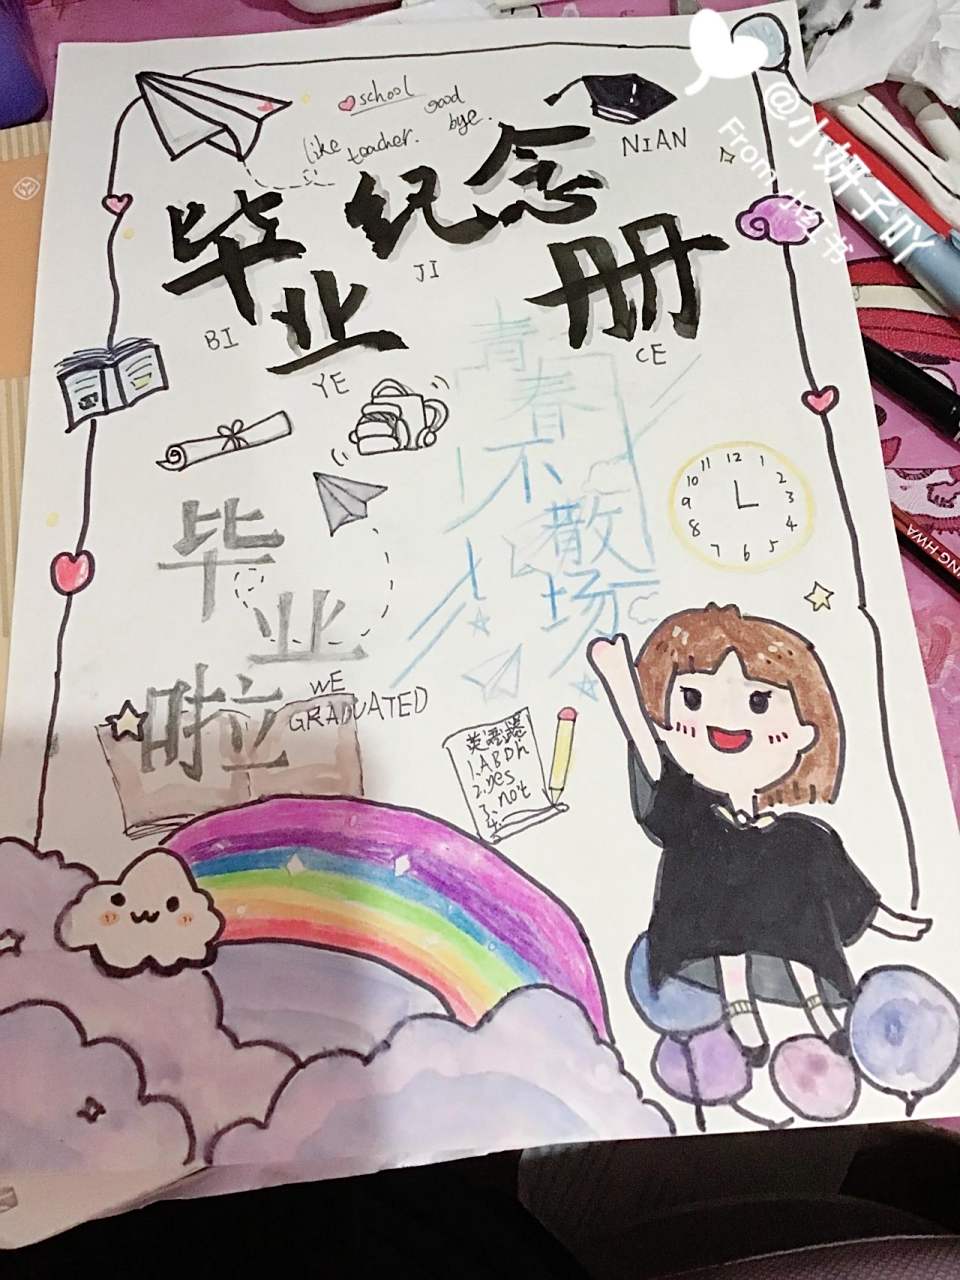 school
good
bye.
like teacher.
NIAN
毕业纪念册
JI
BI
YE
CE
青春不散场
12
1
2
3
4
5
6
7
8
9
10
11
毕业啦
WE
GRADUATED
1.ABDh
2.yes
3.no't
4.
@小妍子吖
From 小红书
NG HWA